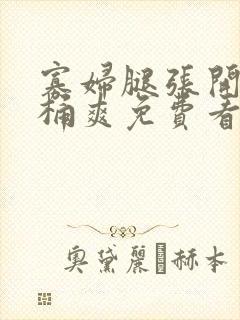 寡婦腿張開
桶爽免費看
奧黛麗 赫本